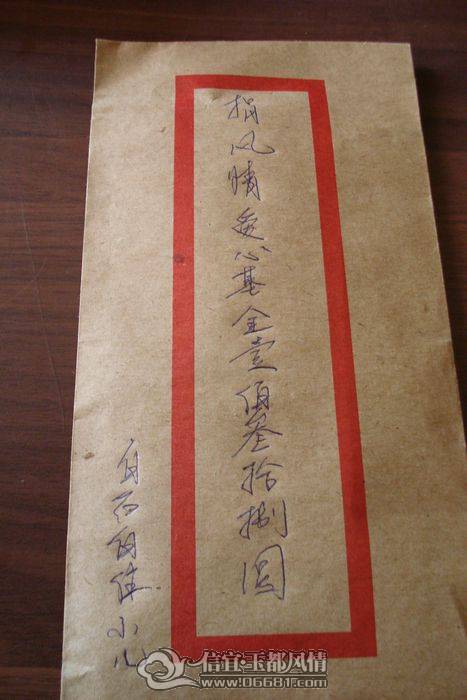 捐风情爱心基金壹佰叁拾捌圆
白石的佳小心
信宜玉都风情
www.06681.com